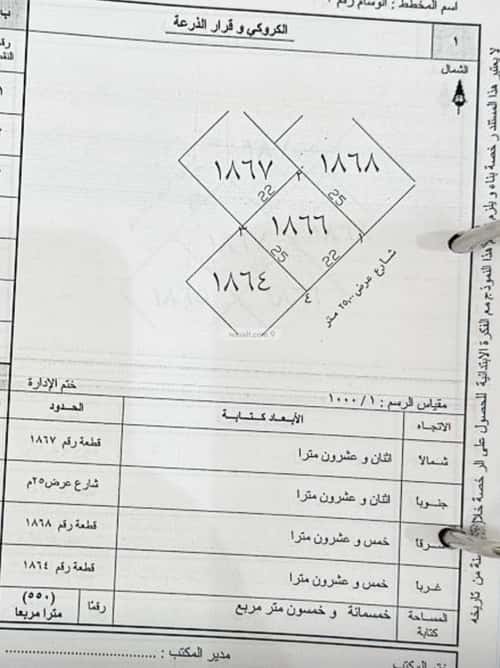 اسم المخطط : الوسام رقم
١
الكروكي و قرار الذرعة
الشمال
١٨٦٧
١٨٦٨
22
25
١٨٦٦
25
22
١٨٦٤
٤
شارع عرض ٢٥,٠٠ متر
مقياس الرسم : ١ / ١٠٠٠
ختم الإدارة
الاتجاه
الأبعاد كتابة
الحدود
شمالا
اثنان و عشرون مترا
قطعة رقم ١٨٦٧
جنوبا
اثنان و عشرون مترا
شارع عرض ٢٥م
شرقا
خمس و عشرون مترا
قطعة رقم ١٨٦٨
غربا
خمس و عشرون مترا
قطعة رقم ١٨٦٤
المساحة كتابة
خمسمائة و خمسون متر مربع
رقما
(٥٥٠)
مترا مربعا
مدير المكتب :
لا يعتبر هذا المستند رخصة بناء و يلزم
هذا النموذج مع الفكرة الابتدائية للحصول على الرخصة خلال
سنة من تاريخه